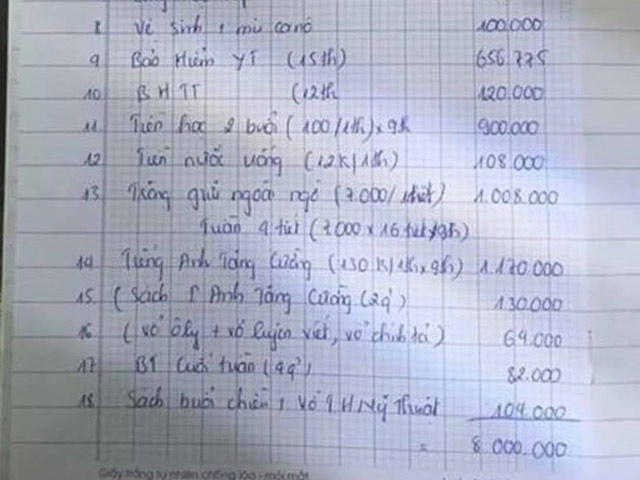 8 Vệ sinh, mũ ca nô 100.000
9 Bảo Hiểm YT (15th) 656.775
10 BHTT (12th 120.000
11 Tiền học 2 buổi (100/1th) x 9th 900.000
12 Tiền nước uống (12K/1th) 108.000
13 Tiếng ngoại ngữ (7.000/1tiết) 1.008.000
Tuần 4 tiết (7.000 x 16 tiết/9th)
14 Tiếng Anh Tăng Cường (130K/1th x 9th) 1.170.000
15 (Sách T Anh Tăng Cường (2q) 130.000
16 (vở ôly + vở luyện viết, vở chính tả) 64.000
17 BT Cuối tuần (4q) 82.000
18 Sách buổi chiều, vở TH Mỹ Thuật 104.000
= 8.000.000
Giấy trắng tự nhiên chống lóa - mỏi mắt